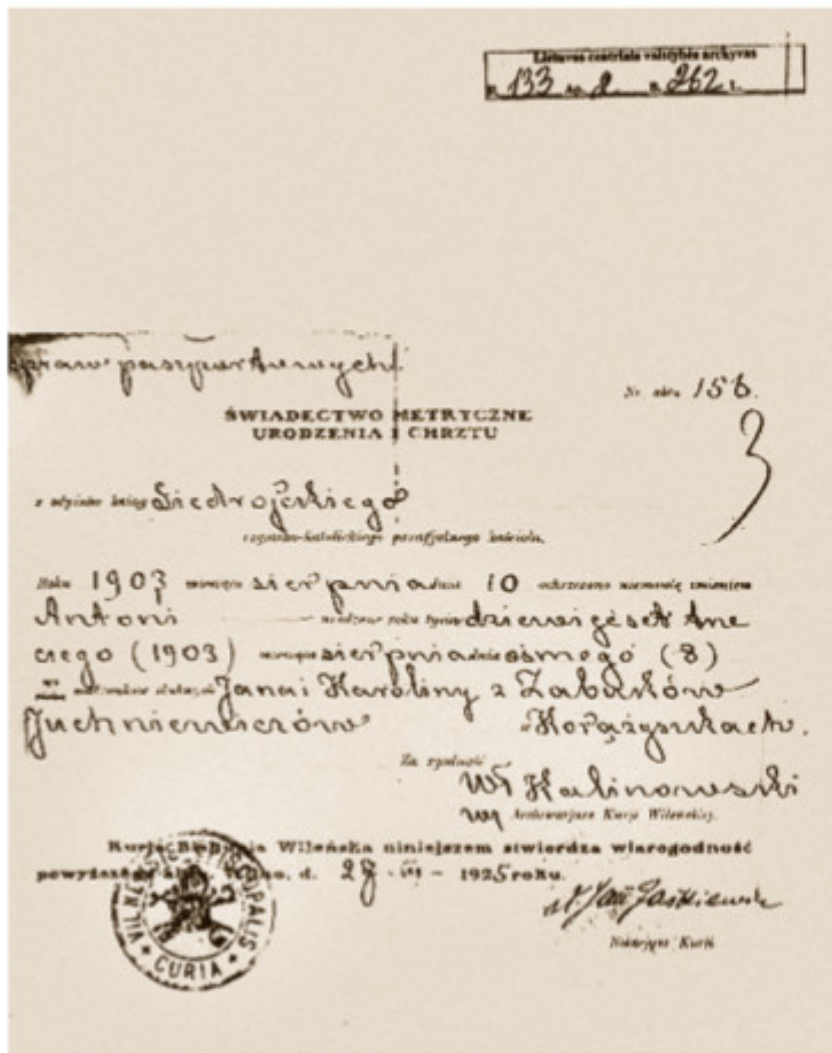 Lietuvos centrinis valstybės archyvas
F. 133 Ap. 2 B. 262 L.
spraw paszportowych
Nr. aktu 158.
ŚWIADECTWO METRYCZNE
URODZENIA I CHRZTU
3
z odpisów ksiąg Giedrojckiego
rzymsko-katolickiego parafjalnego kościoła.
Roku 1903 miesiąca sierpnia dnia 10 ochrzczono niemowlę imieniem
Antoni urodzone roku tysiąc dziewięćset trze
ciego (1903) miesiąca sierpnia dnia ósmego (8)
Jana i Karoliny z Zabiełów
Juchniewiczów w Korążyszkach.
Za zgodność
Wł Kalinowski
Archiwarjusz Kurji Wileńskiej.
Kurja Biskupia Wileńska niniejszem stwierdza wiarogodność
powyższego aktu. Wilno, d. 28 - VII - 1925 roku.
Jan Jaśkiewicz
Notarjusz Kurji
VILNENSIS EPISCOPALIS
CURIA